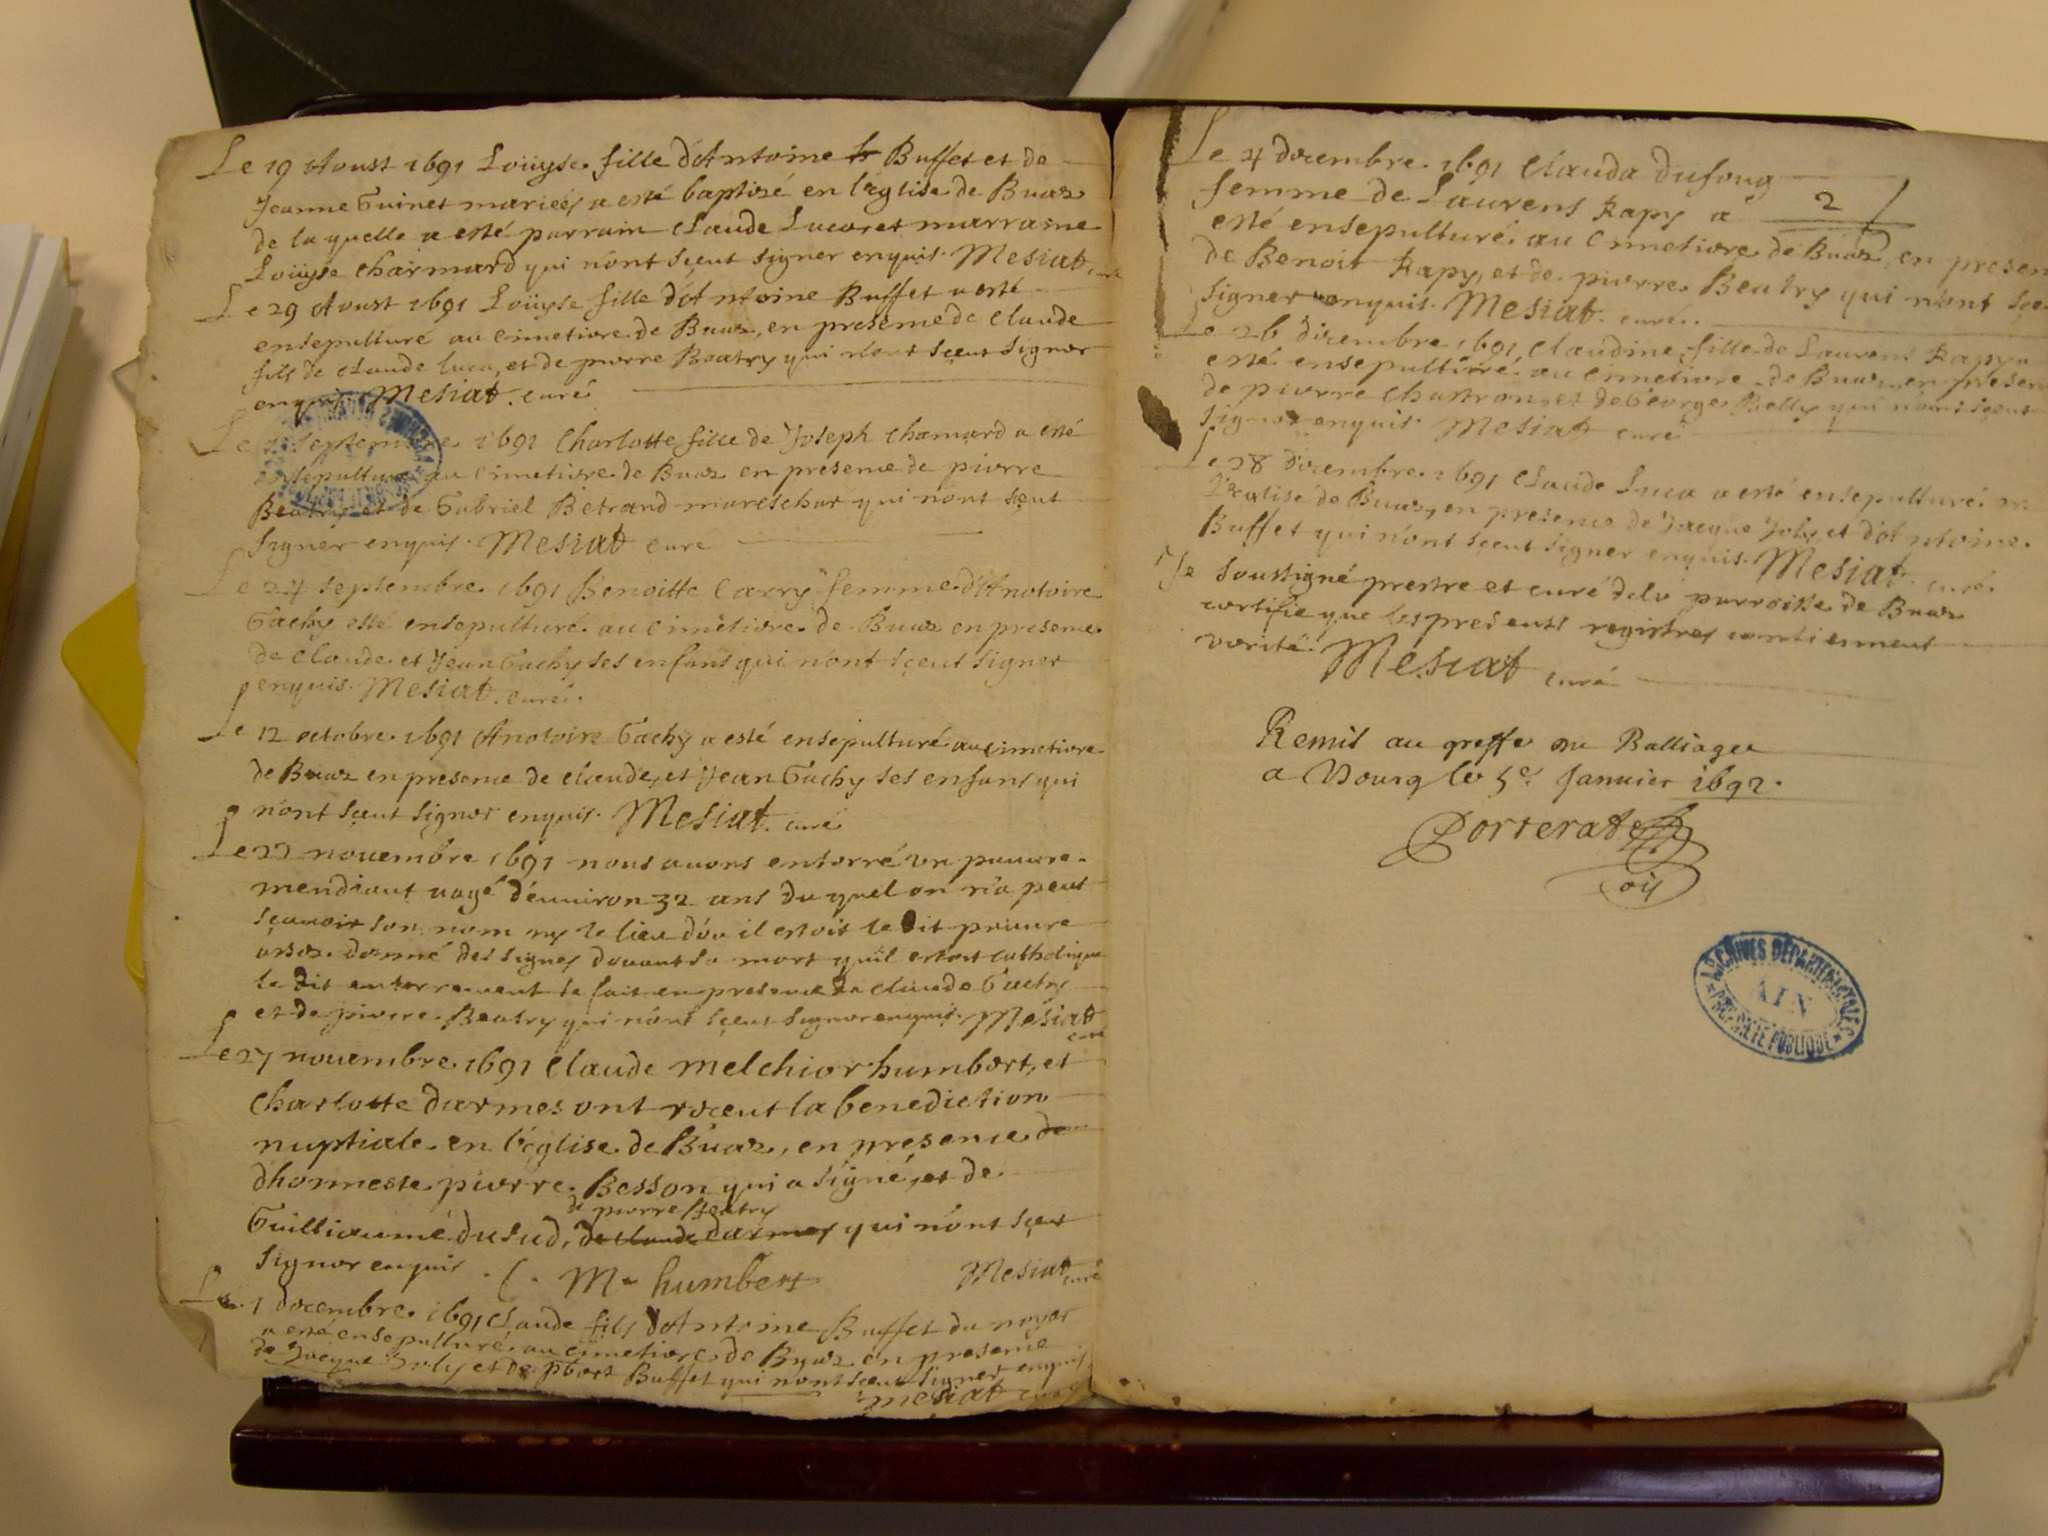 Le 19 Aoust 1691 Loüyse fille d'Antoine Buffet et de
Jeanne Guinet mariés a esté baptisé en l'eglise de Buaz
de laquelle a esté parrain Claude Luca et marraine
Loüyse Charmard qui n'ont sçeut signer enquis. Mesiat curé
Le 29 Aoust 1691 Loüyse fille d'Antoine Buffet a esté
ensepulturé au cimetiere de Buaz, en presence de Claude
fils de Claude Luca, et de pierre Beatry qui n'ont sçeut signer
enquis Mesiat curé
Le septembre 1691 Charlotte fille de Joseph Chamard a esté
ensepulturé au cimetiere de Buaz en presence de pierre
Beatry et de Gabriel Betrand mareschat qui n'ont sçeut
signer enquis. Mesiat curé
Le 24 septembre 1691 Benoitte Carry femme d'Anotoire
Gachy esté ensepulturé au cimetiere de Buaz en presence
de Claude et Jean Gachy ses enfans qui n'ont sçeut signer
enquis. Mesiat curé.
Le 12 octobre 1691 Anotoire Gachy a esté ensepulturé au cimetiere
de Buaz en presence de Claude, et Jean Gachy ses enfans qui
n'ont sçeut signer enquis. Mesiat curé
Le 22 nouembre 1691 nous auons enterré vn pauure
mendiant aagé d'enuiron 32 ans du quel on n'a peut
sçauoir son nom ny le lieu d'ou il estoit le dit pauure
donné des signes deuant sa mort qu'il estoit catholique
le dit enterrement se fait en presence de Claude Gachy
et de pierre Beatry qui n'ont sçeut signer enquis. Mesiat
curé
Le 27 nouembre 1691 Claude Melchior humbert, et
Charlotte darmes ont receut la benediction
nuptiale en l'eglise de Buaz, en presence de
d'honneste pierre Besson qui a signé, et de
de pierre Beatry
Guilliaume dusud, de Claude darmes qui n'ont sçeut
signer enquis. C. M. humbert Mesiat curé
Le 1 decembre 1691 Claude fils d'Antoine Buffet du noyer
a esté ensepulturé au cimetiere de Buaz en presence
de Jacque Joly et de Buffet qui n'ont sçeut signer enquis
Mesiat curé
Le 4 decembre 1691 Clauda dufoug
femme de Laurens Rapy a 2
esté ensepulturé au cimetiere de Buaz, en presen
de Benoit Rapy, et de pierre Beatry qui n'ont sçe
signer enquis. Mesiat curé.
Le 26 decembre 1691 Claudine fille de Laurens Rapy a
esté ensepulturé au cimetiere de Buaz en presen
de pierre Chartron et de George Belly qui n'ont sçeut
signer enquis. Mesiat curé
Le 28 decembre 1691 Claude Luca a esté ensepulturé en
l'eglise de Buaz, en presence de Jacque Joly et d'Antoine
Buffet qui n'ont sçeut signer enquis. Mesiat curé.
Je soussigné prestre et curé de la parroisse de Buaz
certifie que les presents registres contiennent
verité. Mesiat curé
Remis au greffe du Balliage
a Bourg le 5e Januier 1692.
Porterat
ARCHIVES DÉPARTEMENTALES
AIN
PROPRIÉTÉ PUBLIQUE